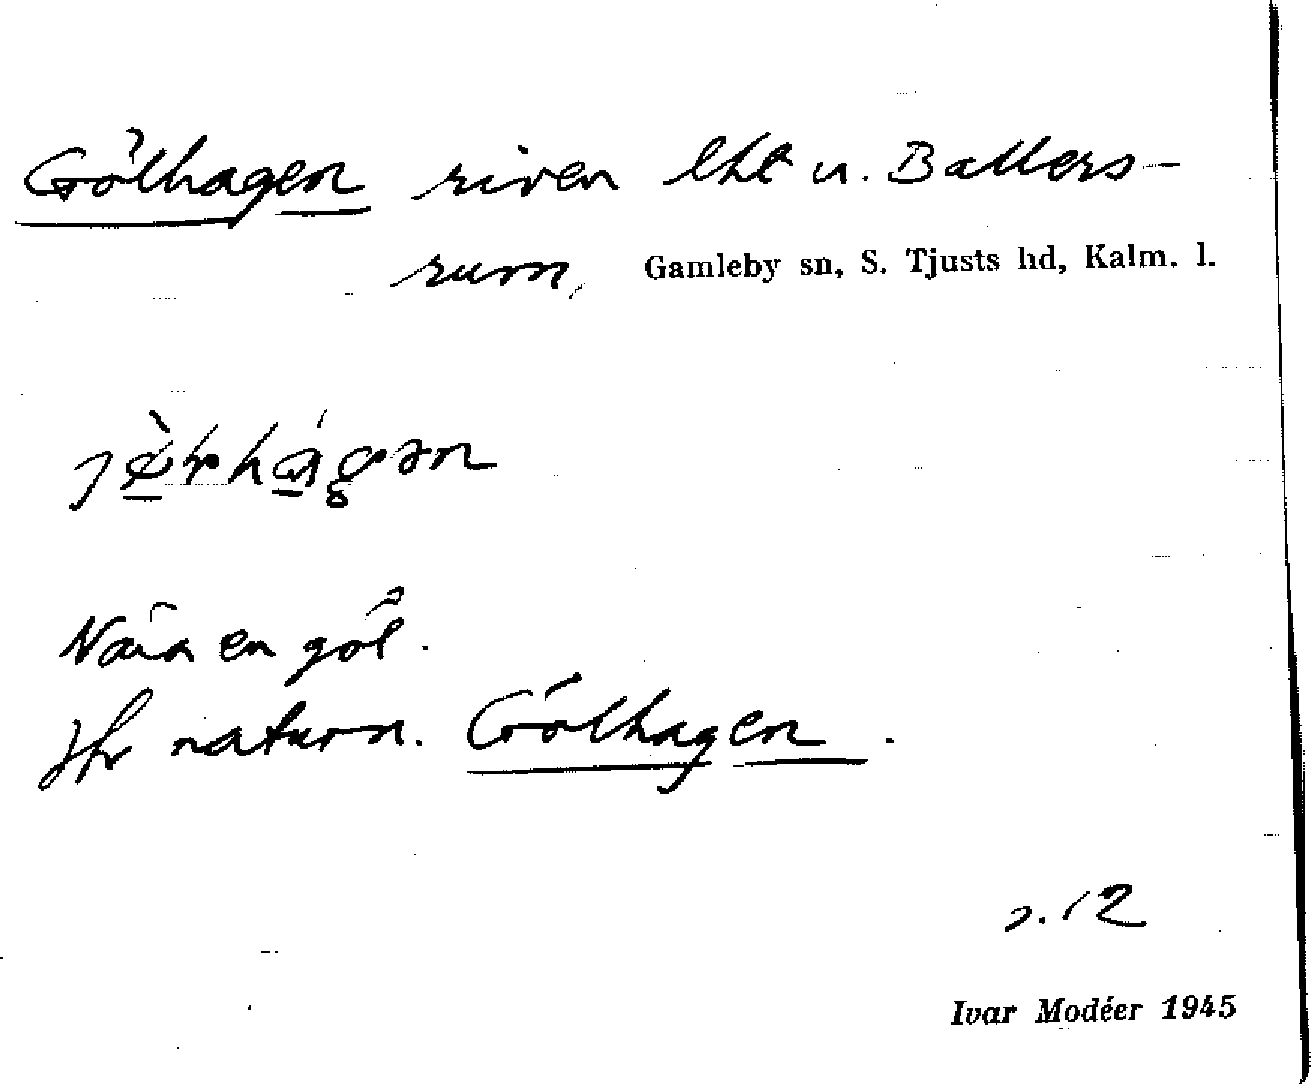 Gölhagen riven lht u. Ballers-
rum, Gamleby sn, S. Tjusts hd, Kalm. l.
Nära en göl.
Jfr naturn. Gölhagen.
s. 12
Ivar Modéer 1945